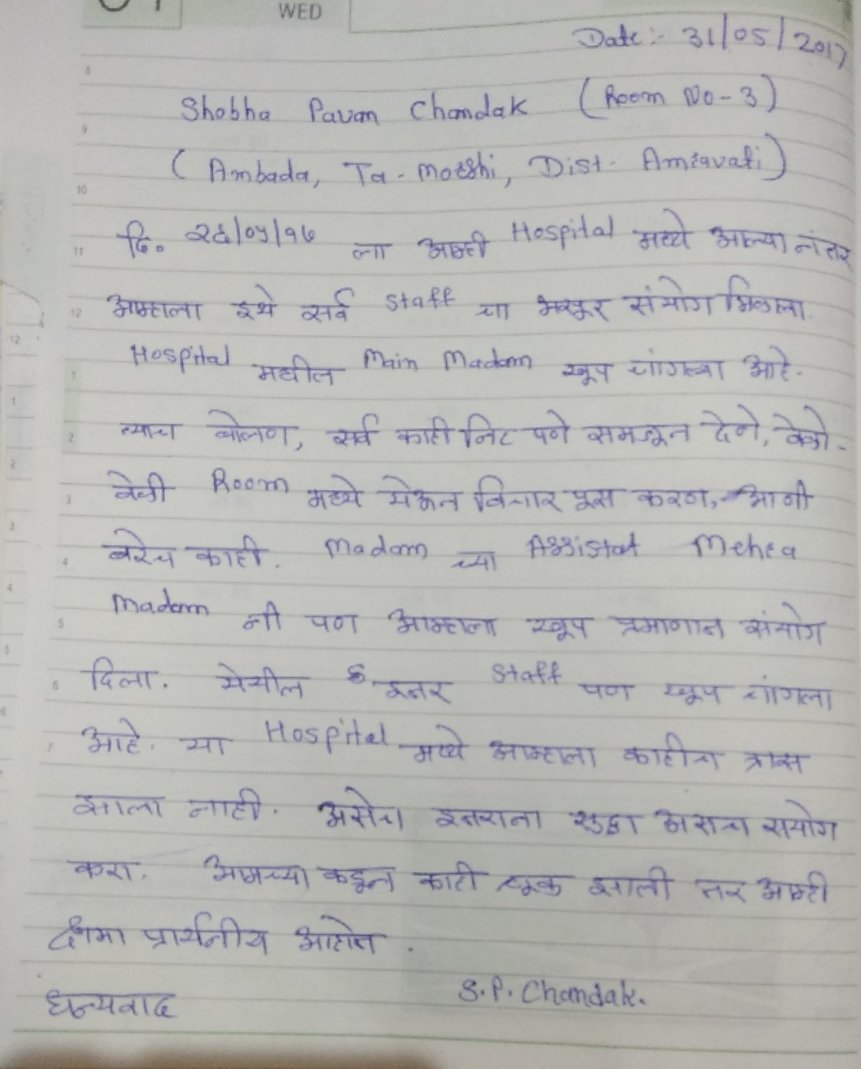 WED
Date:- 31/05/2017
Shobha Pavan Chandak (Room No-3)
(Ambada, Ta-Morshi, Dist- Amravati)
दि. २६/०५/१७ ला आम्ही Hospital मध्ये आल्या नंतर
आम्हाला इथे सर्व staff चा भरपूर संयोग मिळाला.
Hospital मधील Main Madam खूप चांगल्या आहे.
त्याच बोलण, सर्व काही निट पणे समजून देणे, वेळो-
वेळी Room मध्ये येऊन विचार पूस करण, आणी
बरेच काही. Madam च्या Assistat Mehra
Madam नी पण आम्हाला खूप प्रमाणात संयोग
दिला. येथील इतर Staff पण खूप चांगला
आहे. या Hospital मध्ये आम्हाला काहीच त्रास
झाला नाही. असेच इतराना सुद्धा असाच सयोग
करा. आमच्या कडून काही चूक झाली तर आम्ही
क्षमा प्रार्थनीय आहोत.
धन्यवाद S.P. Chandak.